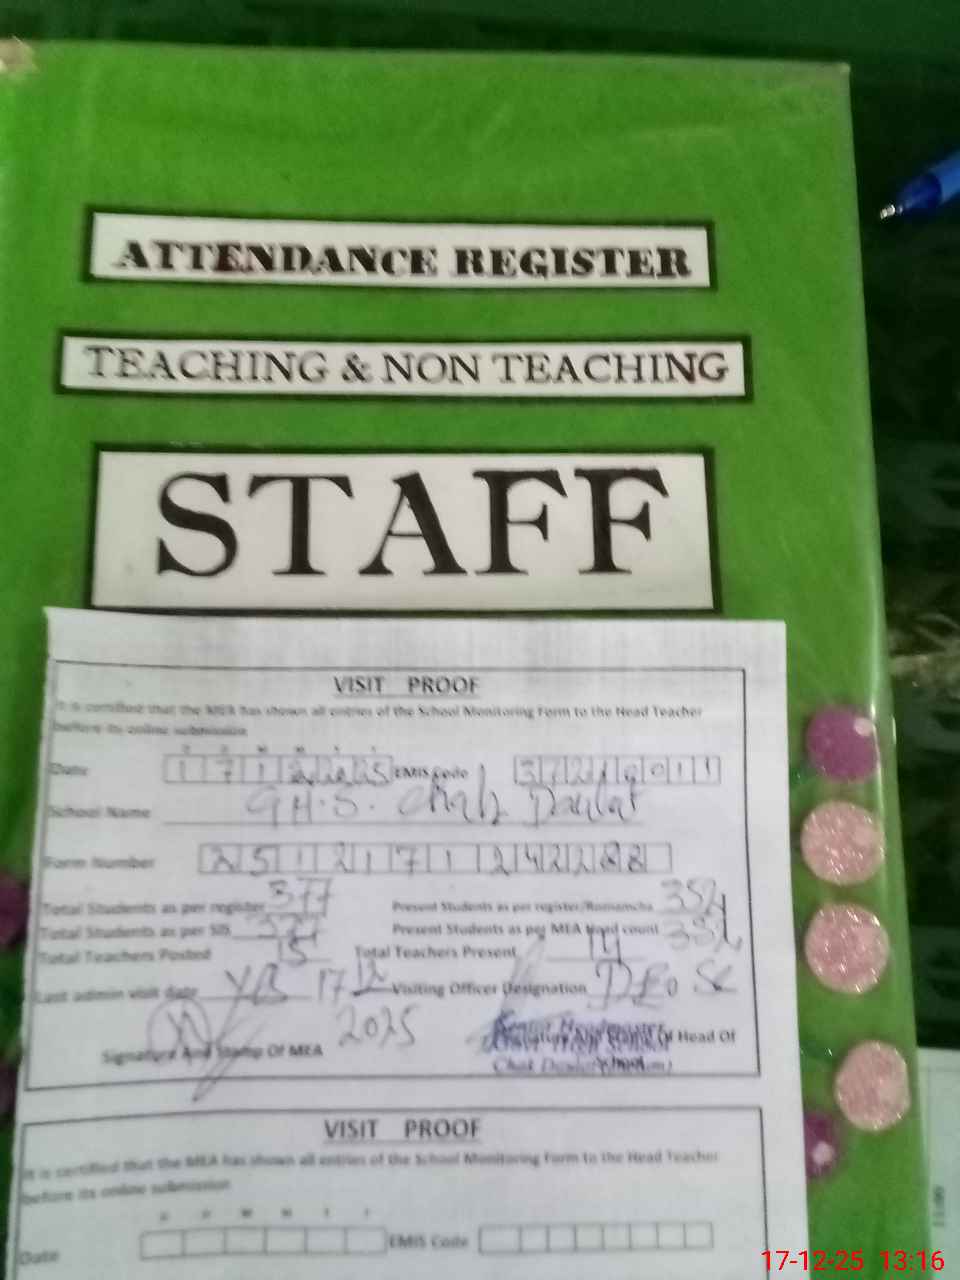 ATTENDANCE REGISTER
TEACHING & NON TEACHING
STAFF
VISIT PROOF
It is certified that the MEA has shown all entries of the School Monitoring Form to the Head Teacher
before its online submission
D D M M Y Y
Date 171225 EMIS Code
School Name G.H.S. Chak Daulat
Form Number
Total Students as per register 377 Present Students as per register/Romancha 352
Total Students as per SIS 377 Present Students as per MEA Head count 332
Total Teachers Posted 15 Total Teachers Present 14
Last admin visit date 17 12 Visiting Officer Designation DEO SE
2025
Signature And Stamp Of MEA Signature And Stamp Of Head Of
School
VISIT PROOF
It is certified that the MEA has shown all entries of the School Monitoring Form to the Head Teacher
before its online submission
D D M M Y Y
Date EMIS Code
17-12-25 13:16